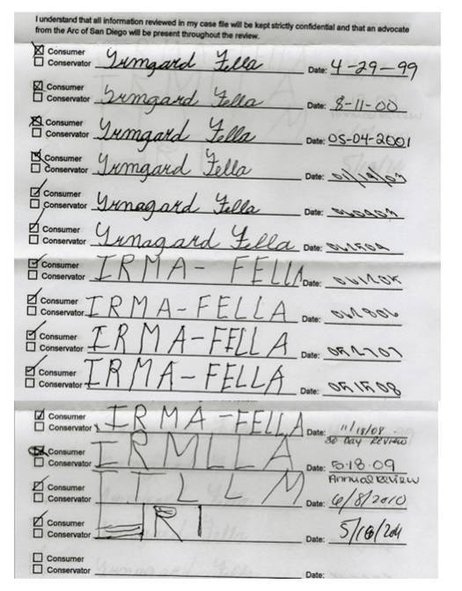 I understand that all information reviewed in my case file will be kept strictly confidential and that an advocate
from the Arc of San Diego will be present throughout the review.
Consumer
Conservator Yrmgard Fella Date: 4-29-99
Consumer
Conservator Yrmgard Fella Date: 8-11-00
Consumer
Conservator Yrmgard Fella Date: 05-04-2001
Consumer
Conservator Yrmgard Fella Date:
Consumer
Conservator Yrnagard Fella Date:
Consumer
Conservator Yrnagard Fella Date:
Consumer
Conservator IRMA- FELLA Date:
Consumer
Conservator IRMA-FELLA Date:
Consumer
Conservator IRMA-FELLA Date:
Consumer
Conservator IRMA-FELLA Date:
Consumer
Conservator IRMA-FELLA Date: 11/18/08
30 DAY REVIEW
Consumer
Conservator IRMLLA Date: 5-18-09
Annual Review
Consumer
Conservator ITLLM Date: 6/8/2010
Consumer
Conservator Date:
Consumer
Conservator Date: